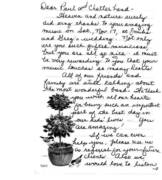 Dear Paul and Chester band -
Heaven and nature surely
did sing thanks to your amazing
music on Sat., Nov. 17, at
and Greg's wedding. Not only
are you such gifted musicians
but you are all so nice. It must
be very rewarding to you that your
music touches so many hearts.
All of our friends and
family are still talking about
the most wonderful band. We thank
you with all our hearts
for being such an important
part of the best day in
our kids' lives. You
are amazing!
If we can ever
help you, please use us
as referral in
clients. Also we
would love to listen